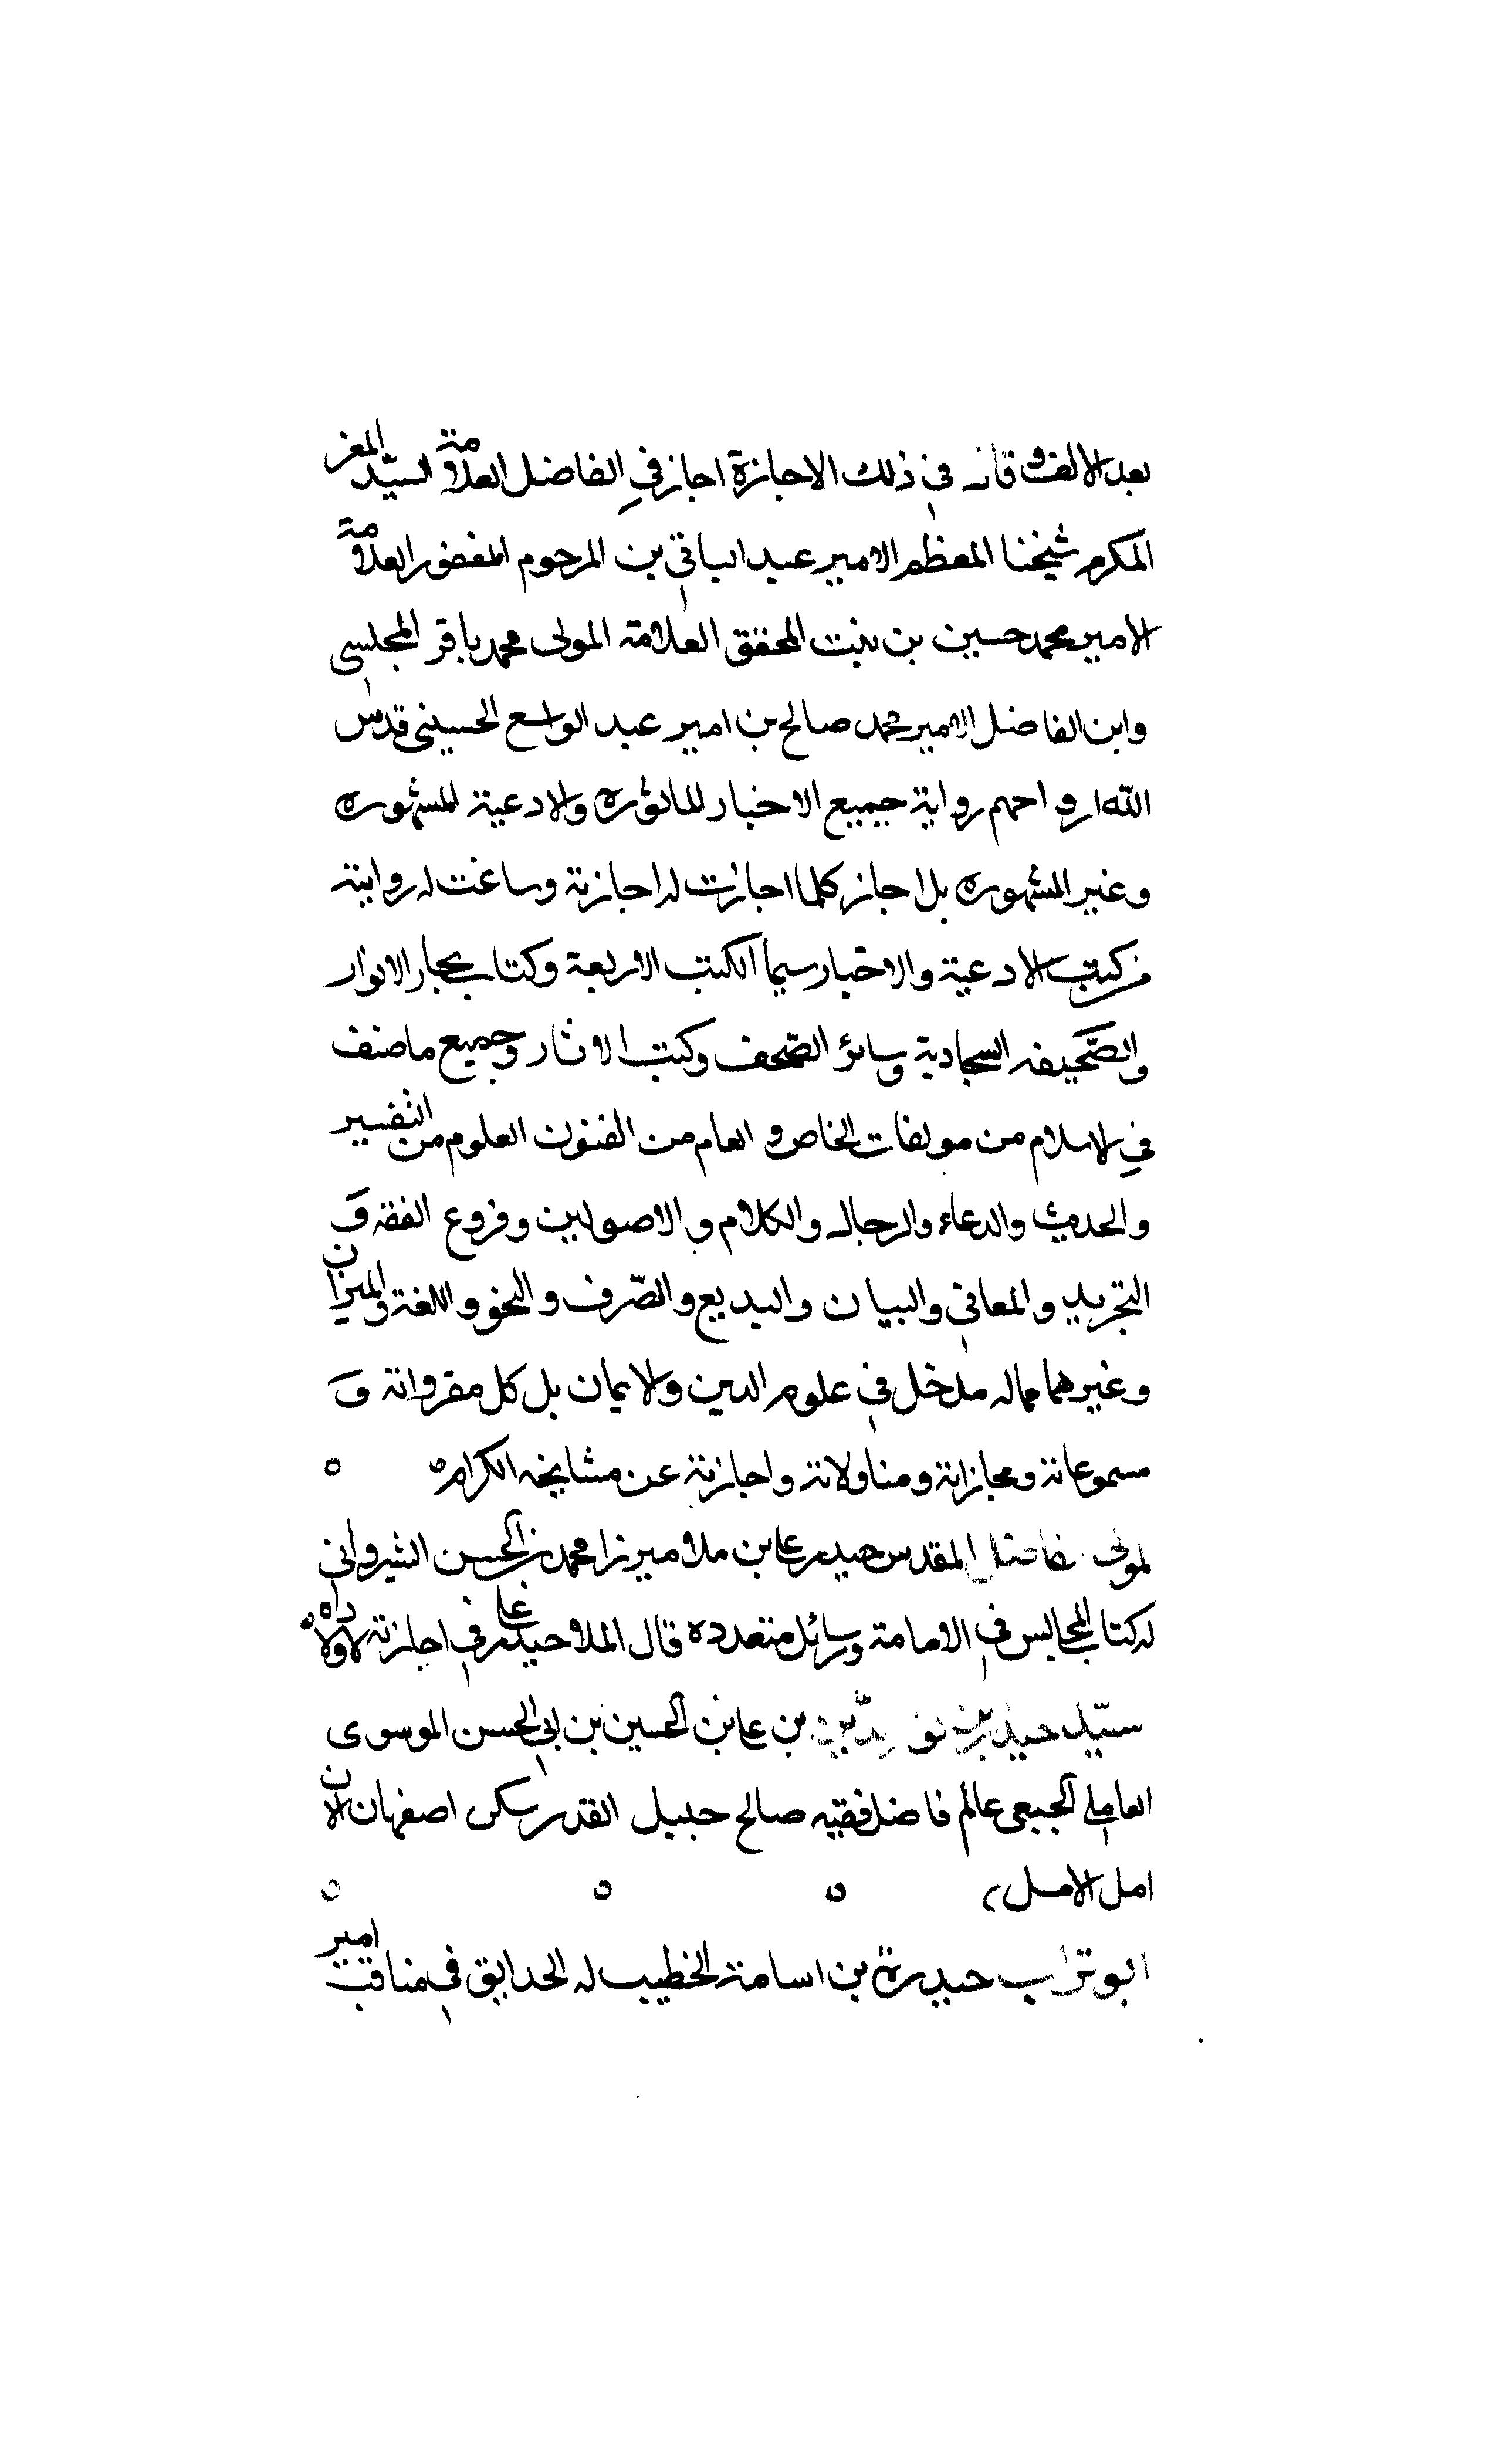 بعد الالف و قال في ذلك الاجازة اجازني الفاضل العلامة السيّد المعز
المكرم شيخنا المعظم الامير عبد الباقي بن المرحوم المغفور العلامة
الامير محمد حسين بن بنت المحقق العلامة المولى محمد باقر المجلسي
وابن الفاضل الامير محمد صالح بن امير عبد الواسع الحسيني قدس
الله ارواحهم رواية جميع الاخبار الماثوره والادعية المشهوره
وغير المشهوره بل اجاز كلما اجازت له اجازته وساغت له روايته
من كتب الادعية والاخبار سيما الكتب الاربعة وكتاب بحار الانوار
والصَّحيفه السجادية وسائر الصّحف وكتب الاثار وجميع ما صنف
في الاسلام من مولفات الخاص و العام من الفنون العلوم من التفسير
والحديث والدعاء والرجال والكلام والاصولين وفروع الفقه وَ
التجريد والمعاني والبيان والبديع والصّرف والنحو واللغة والميزان
وغيرهما مما له مدخل في علوم الدين والايمان بل كل مقرواته وَ
مسموعاته ومجازاته ومناولاته واجازته عن مشايخه الكرام ه ه
لمولى فاضل المقدس حيدر علي بن ملا ميرزا محمد بن الحسن الشيرواني
له كتاب المجالس في الامامة ورسائل متعدده قال الملا حيدر علي في اجازته لاولاده
سيّد حيدر بن نور الدّين بن علي بن الحسين بن ابي الحسن الموسوى
العاملي الجبعي عالم فاضل فقيه صالح جليل القدر سكن اصفهان الان
امل الامل، ه ه ه
ابو تراب حيدرة بن اسامة الخطيب له الحدايق في مناقب امير